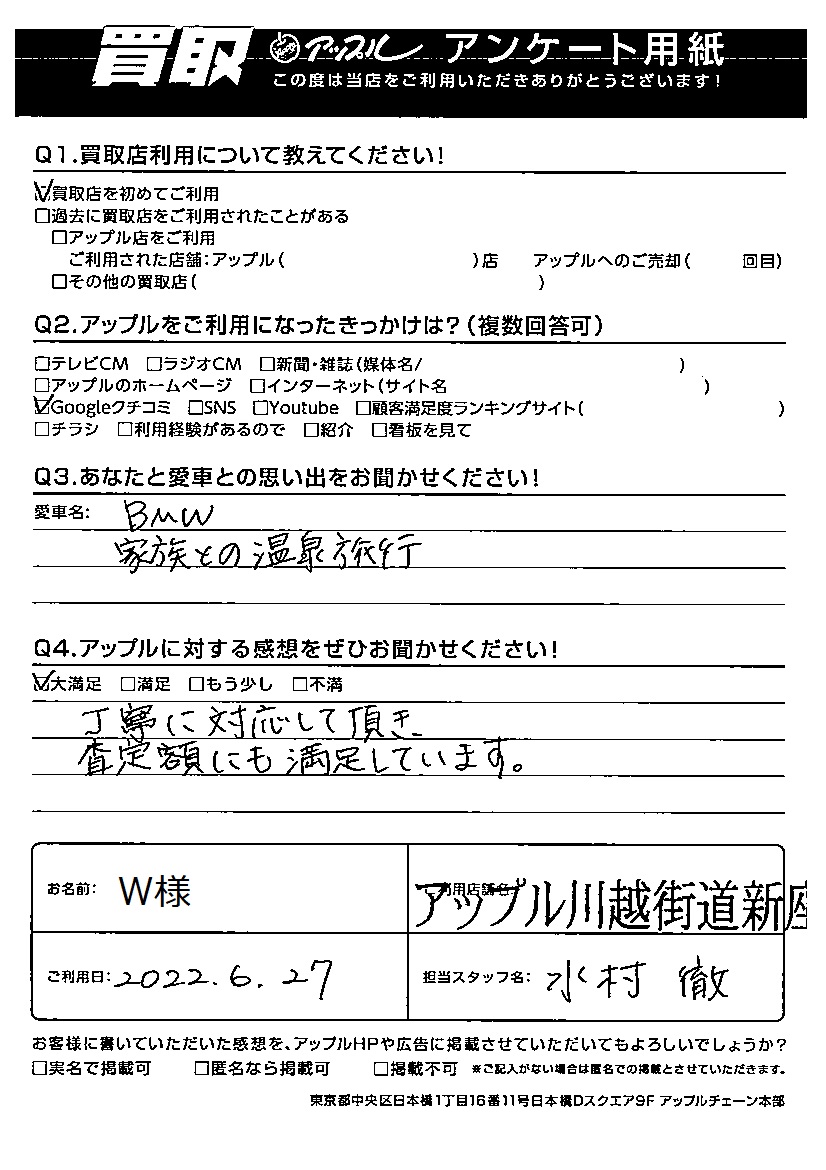 買取 アップル アンケート用紙
この度は当店をご利用いただきありがとうございます!
Q1.買取店利用について教えてください!
☑買取店を初めてご利用
□過去に買取店をご利用されたことがある
□アップル店をご利用
ご利用された店舗:アップル( )店 アップルへのご売却( 回目)
□その他の買取店( )
Q2.アップルをご利用になったきっかけは?(複数回答可)
□テレビCM □ラジオCM □新聞・雑誌(媒体名/ )
□アップルのホームページ □インターネット(サイト名 )
☑Googleクチコミ □SNS □Youtube □顧客満足度ランキングサイト( )
□チラシ □利用経験があるので □紹介 □看板を見て
Q3.あなたと愛車との思い出をお聞かせください!
愛車名: BMW
家族との温泉旅行
Q4.アップルに対する感想をぜひお聞かせください!
☑大満足 □満足 □もう少し □不満
丁寧に対応して頂き、
査定額にも満足しています。
お名前: W様
ご利用店舗名: アップル川越街道新座
ご利用日: 2022.6.27
担当スタッフ名: 水村 徹
お客様に書いていただいた感想を、アップルHPや広告に掲載させていただいてもよろしいでしょうか?
□実名で掲載可 □匿名なら掲載可 □掲載不可 ※ご記入がない場合は匿名での掲載とさせていただきます。
東京都中央区日本橋1丁目16番11号日本橋Dスクエア9F アップルチェーン本部